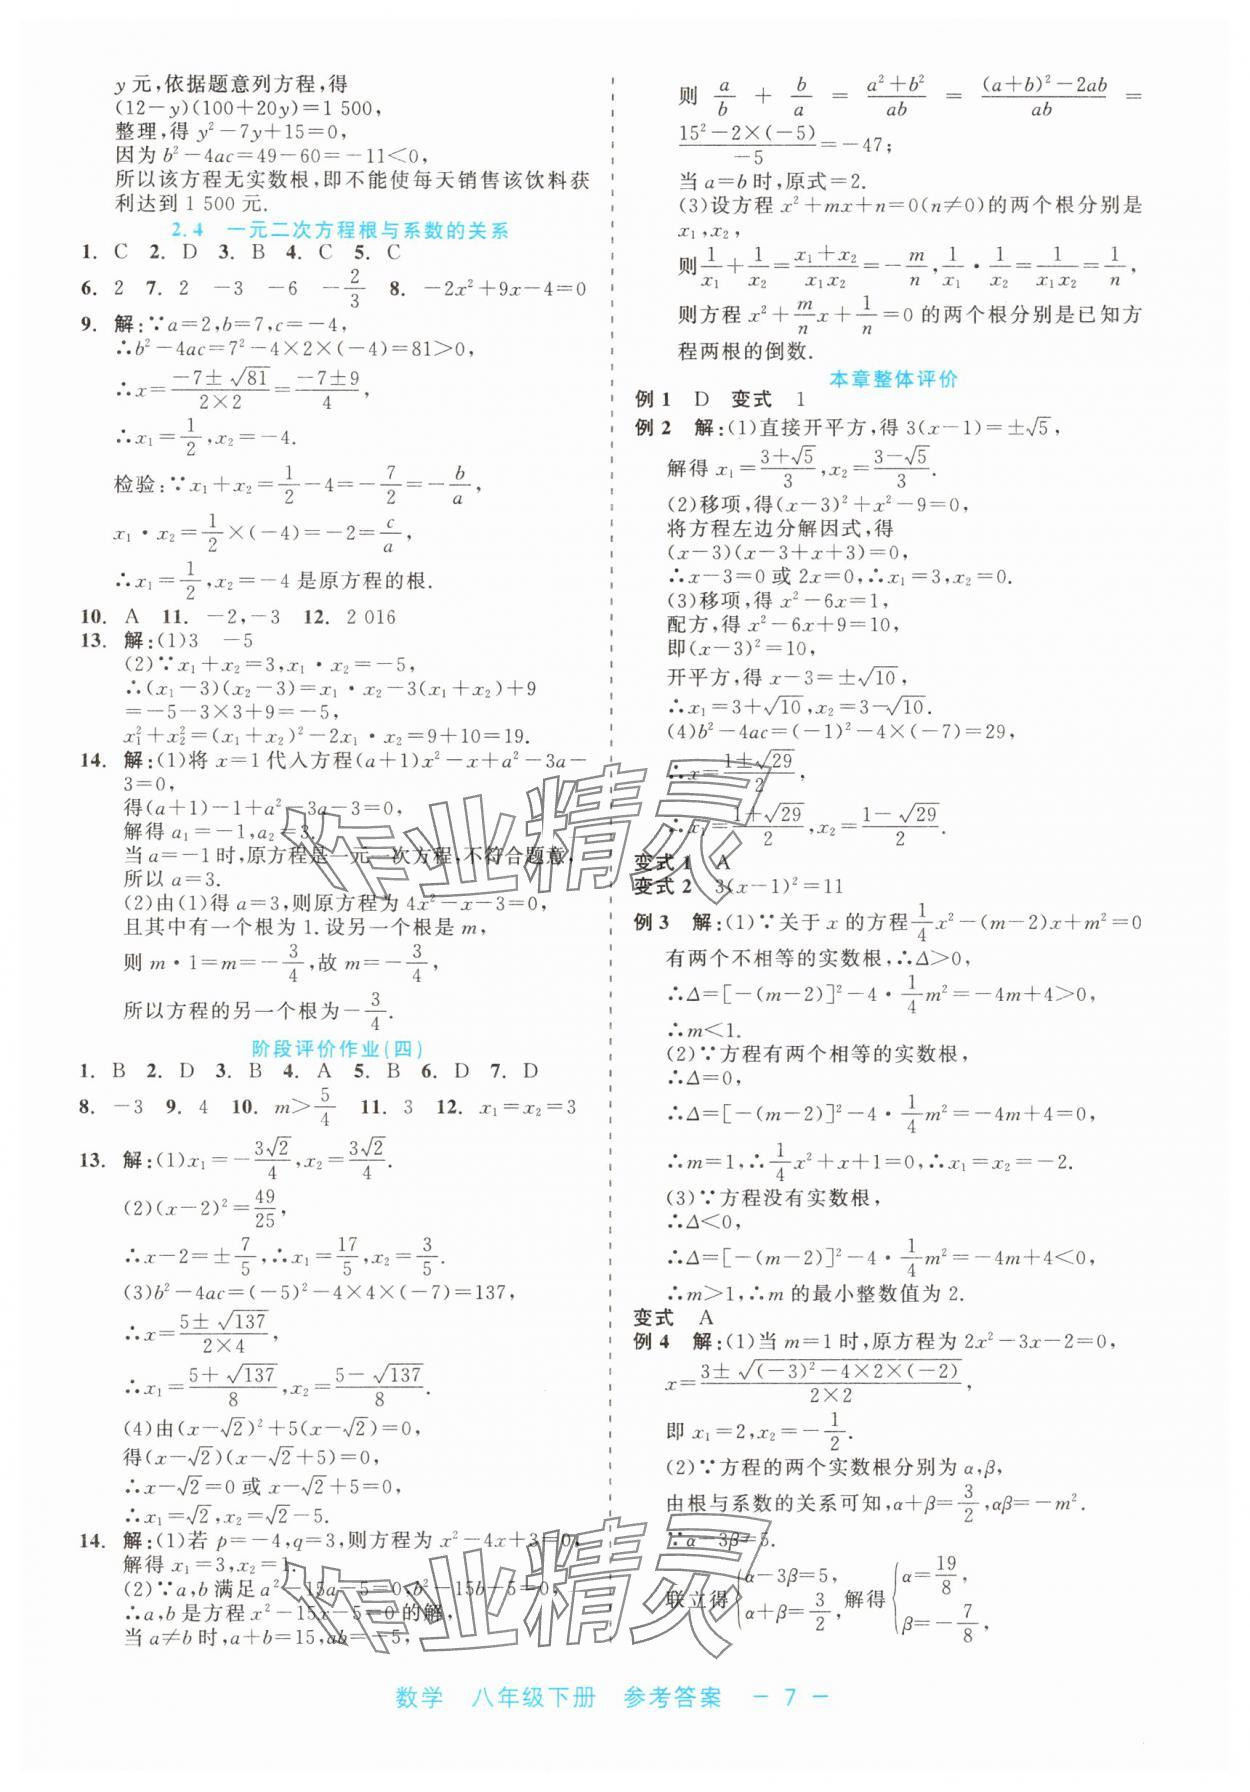 y 元,依据题意列方程,得
(12-y)(100+20y)=1 500,
整理,得 y²-7y+15=0,
因为 b²-4ac=49-60=-11<0,
所以该方程无实数根,即不能使每天销售该饮料获
利达到 1 500 元.
2.4 一元二次方程根与系数的关系
1. C 2. D 3. B 4. C 5. C
6. 2 7. 2 -3 -6 -2/3 8. -2x²+9x-4=0
9. 解:∵a=2,b=7,c=-4,
∴b²-4ac=7²-4×2×(-4)=81>0,
∴x=(-7±√81)/(2×2)=(-7±9)/4,
∴x₁=1/2,x₂=-4.
检验:∵x₁+x₂=1/2-4=-7/2=-b/a,
x₁·x₂=1/2×(-4)=-2=c/a,
∴x₁=1/2,x₂=-4 是原方程的根.
10. A 11. -2,-3 12. 2 016
13. 解:(1)3 -5
(2)∵x₁+x₂=3,x₁·x₂=-5,
∴(x₁-3)(x₂-3)=x₁·x₂-3(x₁+x₂)+9
=-5-3×3+9=-5,
x₁²+x₂²=(x₁+x₂)²-2x₁·x₂=9+10=19.
14. 解:(1)将 x=1 代入方程(a+1)x²-x+a²-3a-
3=0,
得(a+1)-1+a²-3a-3=0,
解得 a₁=-1,a₂=3.
当 a=-1 时,原方程是一元一次方程,不符合题意,
所以 a=3.
(2)由(1)得 a=3,则原方程为 4x²-x-3=0,
且其中有一个根为 1.设另一个根为 m,
则 m·1=m=-3/4,故 m=-3/4,
所以方程的另一个根为-3/4.
阶段评价作业(四)
1. B 2. D 3. B 4. A 5. B 6. D 7. D
8. -3 9. 4 10. m>5/4 11. 3 12. x₁=x₂=3
13. 解:(1)x₁=-3√2/4,x₂=3√2/4.
(2)(x-2)²=49/25,
∴x-2=±7/5,∴x₁=17/5,x₂=3/5.
(3)b²-4ac=(-5)²-4×4×(-7)=137,
∴x=(5±√137)/(2×4),
∴x₁=(5+√137)/8,x₂=(5-√137)/8.
(4)由(x-√2)²+5(x-√2)=0,
得(x-√2)(x-√2+5)=0,
∴x-√2=0 或 x-√2+5=0,
∴x₁=√2,x₂=√2-5.
14. 解:(1)若 p=-4,q=3,则方程为 x²-4x+3=0,
解得 x₁=3,x₂=1.
(2)∵a,b 满足 a²-15a-5=0,b²-15b-5=0,
∴a,b 是方程 x²-15x-5=0 的解,
当 a≠b 时,a+b=15,ab=-5,
则 a/b + b/a = (a²+b²)/ab = ((a+b)²-2ab)/ab =
(15²-2×(-5))/(-5)=-47;
当 a=b 时,原式=2.
(3)设方程 x²+mx+n=0(n≠0)的两个根分别是
x₁,x₂,
则1/x₁+1/x₂=(x₁+x₂)/(x₁x₂)=-m/n,1/x₁·1/x₂=1/(x₁x₂)=1/n,
则方程 x²+(m/n)x+1/n=0 的两个根分别是已知方
程两根的倒数.
本章整体评价
例 1 D 变式 1
例 2 解:(1)直接开平方,得 3(x-1)=±√5,
解得 x₁=(3+√5)/3,x₂=(3-√5)/3.
(2)移项,得(x-3)²+x²-9=0,
将方程左边分解因式,得
(x-3)(x-3+x+3)=0,
∴x-3=0 或 2x=0,∴x₁=3,x₂=0.
(3)移项,得 x²-6x=1,
配方,得 x²-6x+9=10,
即(x-3)²=10,
开平方,得 x-3=±√10,
∴x₁=3+√10,x₂=3-√10.
(4)b²-4ac=(-1)²-4×(-7)=29,
∴x=(1±√29)/2,
∴x₁=(1+√29)/2,x₂=(1-√29)/2.
变式 1 A
变式 2 3(x-1)²=11
例 3 解:(1)∵关于 x 的方程1/4x²-(m-2)x+m²=0
有两个不相等的实数根,∴Δ>0,
∴Δ=[-(m-2)]²-4·1/4m²=-4m+4>0,
∴m<1.
(2)∵方程有两个相等的实数根,
∴Δ=0,
∴Δ=[-(m-2)]²-4·1/4m²=-4m+4=0,
∴m=1,∴1/4x²+x+1=0,∴x₁=x₂=-2.
(3)∵方程没有实数根,
∴Δ<0,
∴Δ=[-(m-2)]²-4·1/4m²=-4m+4<0,
∴m>1,∴m 的最小整数值为 2.
变式 A
例 4 解:(1)当 m=1 时,原方程为 2x²-3x-2=0,
x=(3±√((-3)²-4×2×(-2)))/(2×2),
即 x₁=2,x₂=-1/2.
(2)∵方程的两个实数根分别为 α,β,
由根与系数的关系可知,α+β=3/2,αβ=-m².
∵α-3β=5.
联立得{α-3β=5, α+β=3/2, 解得{α=19/8, β=-7/8,
作业精灵
作业精灵
数学 八年级下册 参考答案 - 7 -